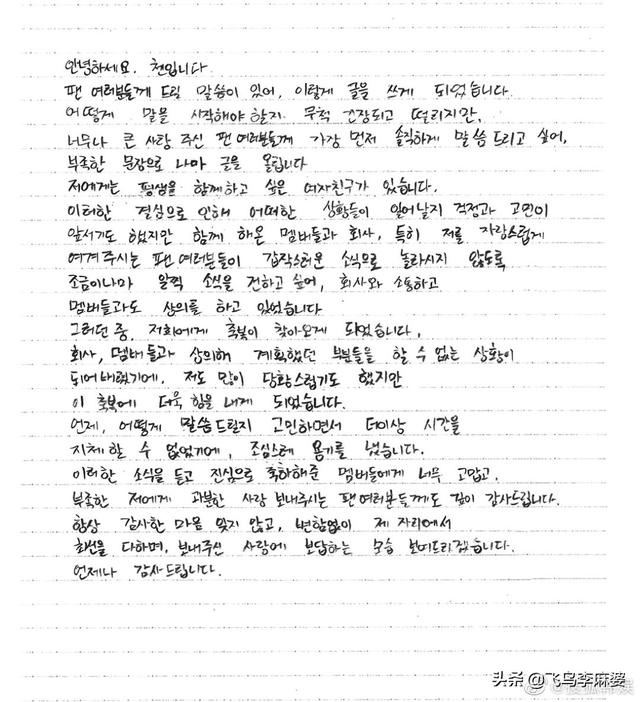 안녕하세요. 첸입니다
팬 여러분들께 드릴 말씀이 있어, 이렇게 글을 쓰게 되었습니다.
어떻게 말을 시작해야 할지 무척 긴장되고 떨리지만,
너무나 큰 사랑 주신 팬 여러분들께 가장 먼저 솔직하게 말씀드리고 싶어,
부족한 문장으로 나마 글을 올립니다
저에게는 평생을 함께하고 싶은 여자친구가 있습니다.
이러한 결심으로 인해 어떠한 상황들이 일어날지 걱정과 고민이
앞서기도 했지만 함께 해온 멤버들과 회사, 특히 저를 자랑스럽게
여겨주시는 팬 여러분들이 갑작스러운 소식으로 놀라시지 않도록
조금이나마 일찍 소식을 전하고 싶어, 회사와 소통하고
멤버들과도 상의를 하고 있었습니다
그러던 중, 저희에게 축복이 찾아오게 되었습니다.
회사, 멤버들과 상의해 계획했던 부분들을 할 수 없는 상황이
되어버렸기에, 저도 많이 당황스럽기도 했지만
이 축복에 더욱 힘을 내게 되었습니다.
언제, 어떻게 말씀 드릴지 고민하면서 더이상 시간을
지체할 수 없었기에, 조심스레 용기를 냈습니다.
이러한 소식을 듣고 진심으로 축하해준 멤버들에게 너무 고맙고,
부족한 저에게 과분한 사랑 보내주시는 팬 여러분들께도 깊이 감사드립니다.
항상 감사한 마음 잊지 않고, 변함없이 제 자리에서
최선을 다하며, 보내주신 사랑에 보답하는 모습 보여드리겠습니다.
언제나 감사드립니다.
头条 @飞鸟李麻婆